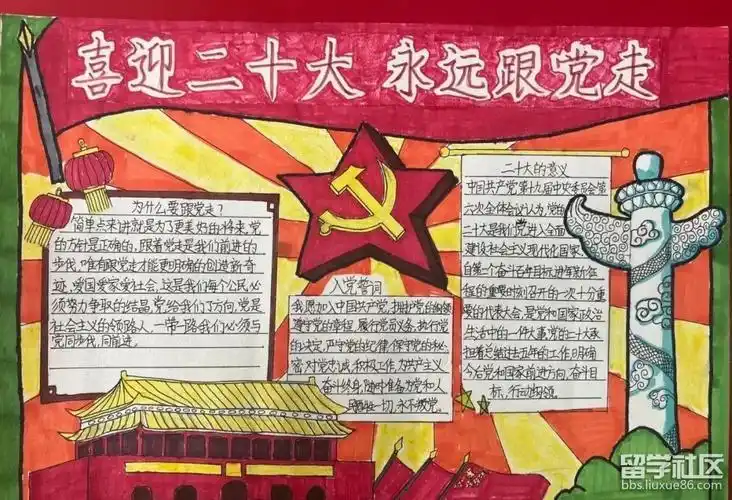 喜迎二十大 永远跟党走
为什么要跟党走?
简单点来讲就是为了更美好的将来,党
的方针是正确的,跟着党走是我们前进的
步伐,唯有跟党走才能更明确的创造新奇
迹,爱国爱家爱社会,这是我们每个公民必
须努力争取的结晶,党给我们了方向,党是
社会主义的领路人,一带一路我们必须与
党同步伐,同前进.
入党誓词
我愿加入中国共产党,拥护党的纲领
遵守党的章程,履行党员义务,执行党
的决定,严守党的纪律,保守党的秘
密,对党忠诚,积极工作,为共产主义
奋斗终身,随时准备为党和人
一切,永不叛党.
二十大的意义
中国共产党第十九届中央委员会第
六次全体会议认为,党的
二十大是我们党进入全面
建设社会主义现代化国家
向第二个奋斗百年目标,进军新征
程的重要时刻召开的一次十分重
要的代表大会,是党和国家政治
生活中的一件大事,党的二十大承
担着总结过去五年的工作,明确
今后党和国家前进方向,奋斗目
标,行动纲领.
留学社区
bbs.liuxue86.com